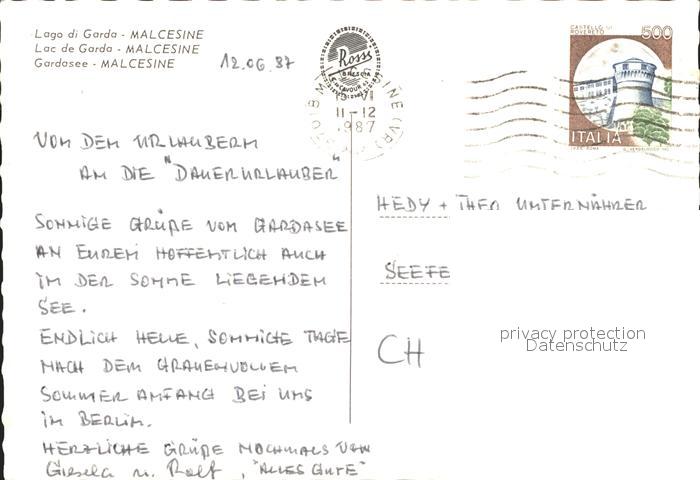 Lago di Garda - MALCESINE
Lac de Garda - MALCESINE
Gardasee - MALCESINE
12.06.87
Rossi
BRESCIA
11-12
1987
CASTELLO DI
ROVERETO
500
ITALIA
VON DEN URLAUBERN
AN DIE "DAUERURLAUBER"
SONNIGE GRÜßE VOM GARDASEE
AN EUREN HOFFENTLICH AUCH
IN DER SONNE LIEGENDEN
SEE.
ENDLICH HELLE, SONNIGE TAGE
NACH DEM GRAUENVOLLEN
SOMMER ANFANG BEI UNS
IN BERLIN.
HERZLICHE GRÜßE NOCHMALS VON
Gisela u. Rolf, "ALLES GUTE"
HEDY + THEO UNTERNÄHRER
SEEFE
CH
privacy protection
Datenschutz